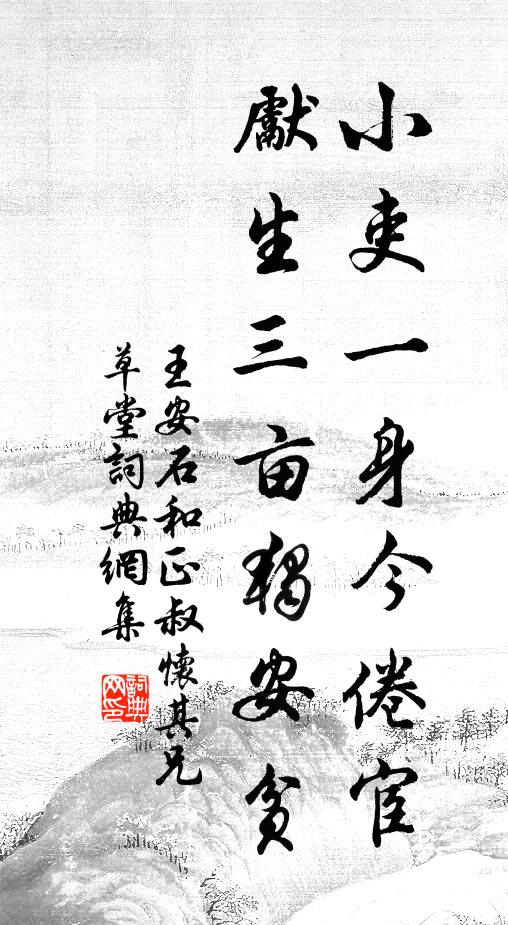 小吏一身今倦宦
獻生三亩獨安貧
王安石和正叔懷其兄
草堂詞典網集
詞典网印